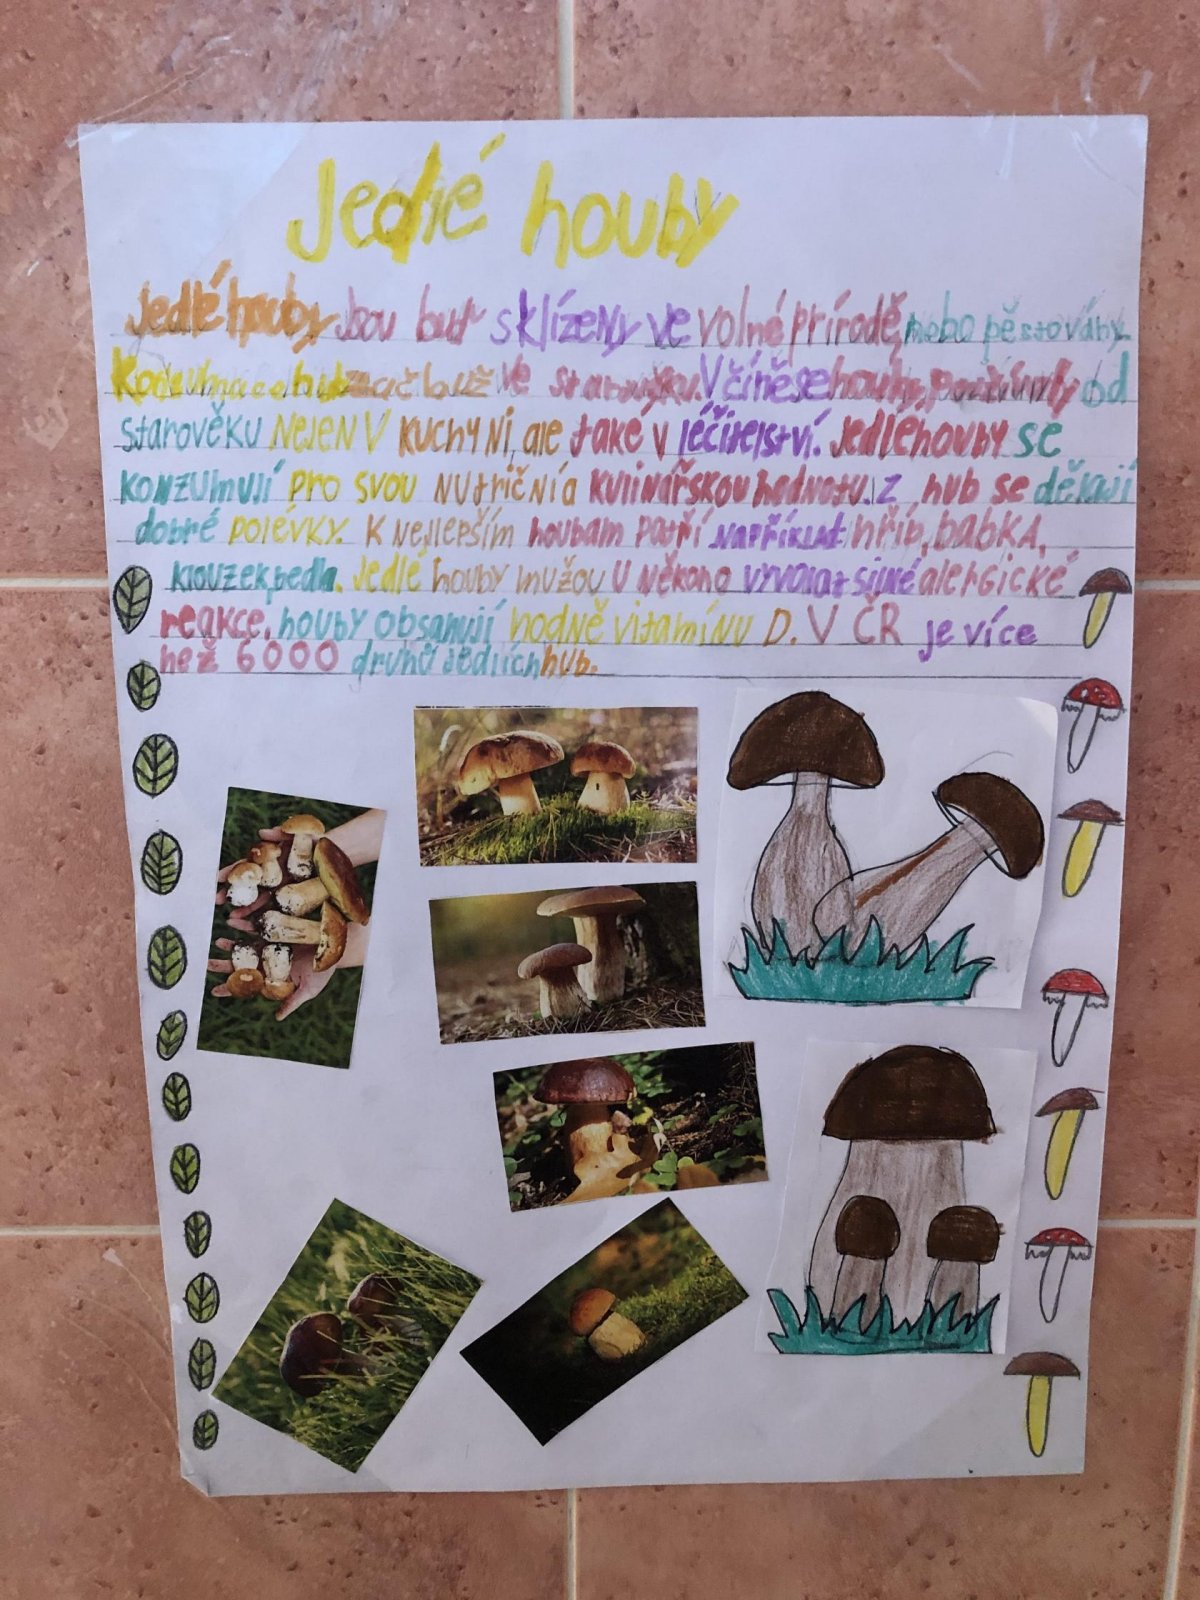 Jedlé houby
Jedlé houby Jsou buď sklízeny ve volné přírodě, nebo pěstovány
hub začal už ve starověku. V číně se houby používaly od
starověku NEJEN V KUCHYNI, ale také v léčitelství. Jedlé houby se
konzumují pro svou NUTRIČNÍ a kulinářskou hodnotu. Z hub se dělají
dobré polévky. K Nejlepším houbam patří například hřib, babka,
klouzek, bedla. Jedlé houby mužou u někoho vyvolat silné alergické
reakce. houby obsahují hodně vitamínu D. V ČR je více
než 6000 druhů Jedlích hub.